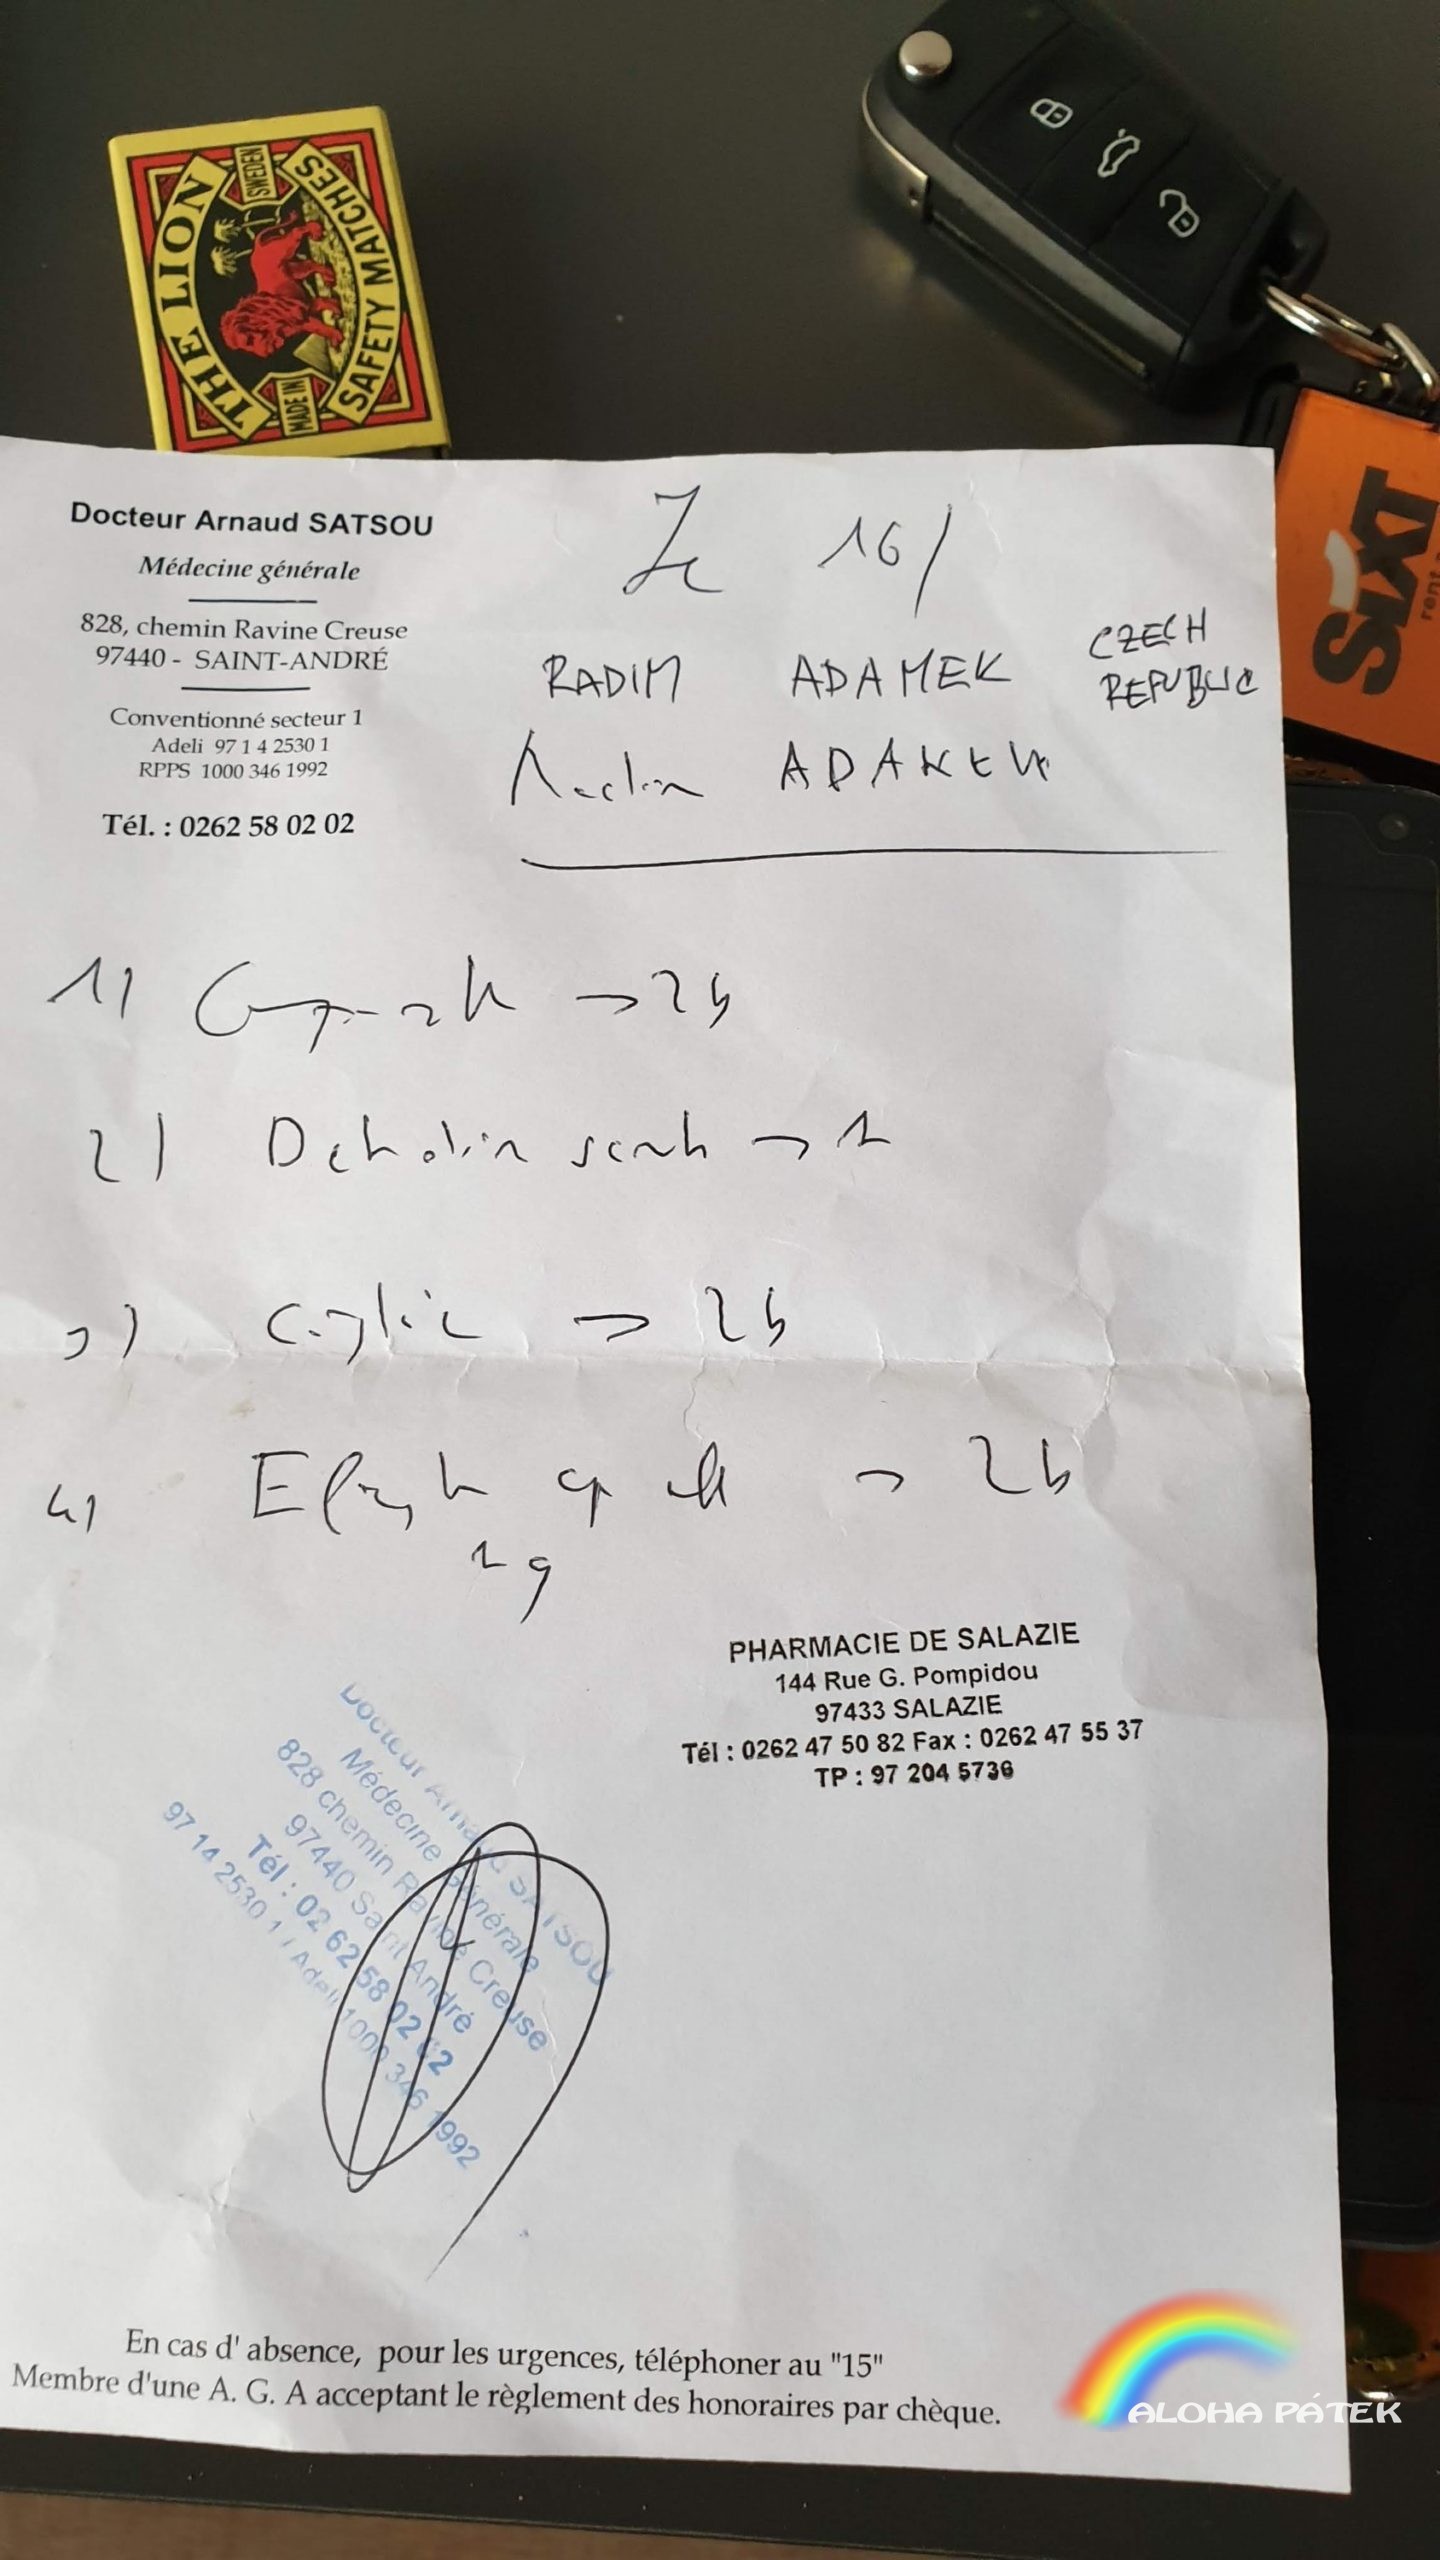 THE LION
SAFETY MATCHES
MADE IN
SWEDEN
SIXT
rent
Docteur Arnaud SATSOU
Médecine générale
828, chemin Ravine Creuse
97440 - SAINT-ANDRÉ
Conventionné secteur 1
Adeli 97 1 4 2530 1
RPPS 1000 346 1992
Tél. : 0262 58 02 02
16/
RADIM ADAMEK CZECH
REPUBLIC
1) → 2b
2) → 1
3) → 2b
4) → 2b
1g
PHARMACIE DE SALAZIE
144 Rue G. Pompidou
97433 SALAZIE
Tél : 0262 47 50 82 Fax : 0262 47 55 37
TP : 97 204 5736
Docteur Arnaud SATSOU
Médecine Générale
828 chemin Ravine Creuse
97440 Saint André
Tél : 02 62 58 02 02
97 14 2530 1 / Adeli 1000 346 1992
En cas d' absence, pour les urgences, téléphoner au "15"
Membre d'une A. G. A acceptant le règlement des honoraires par chèque.
ALOHA PÁTEK